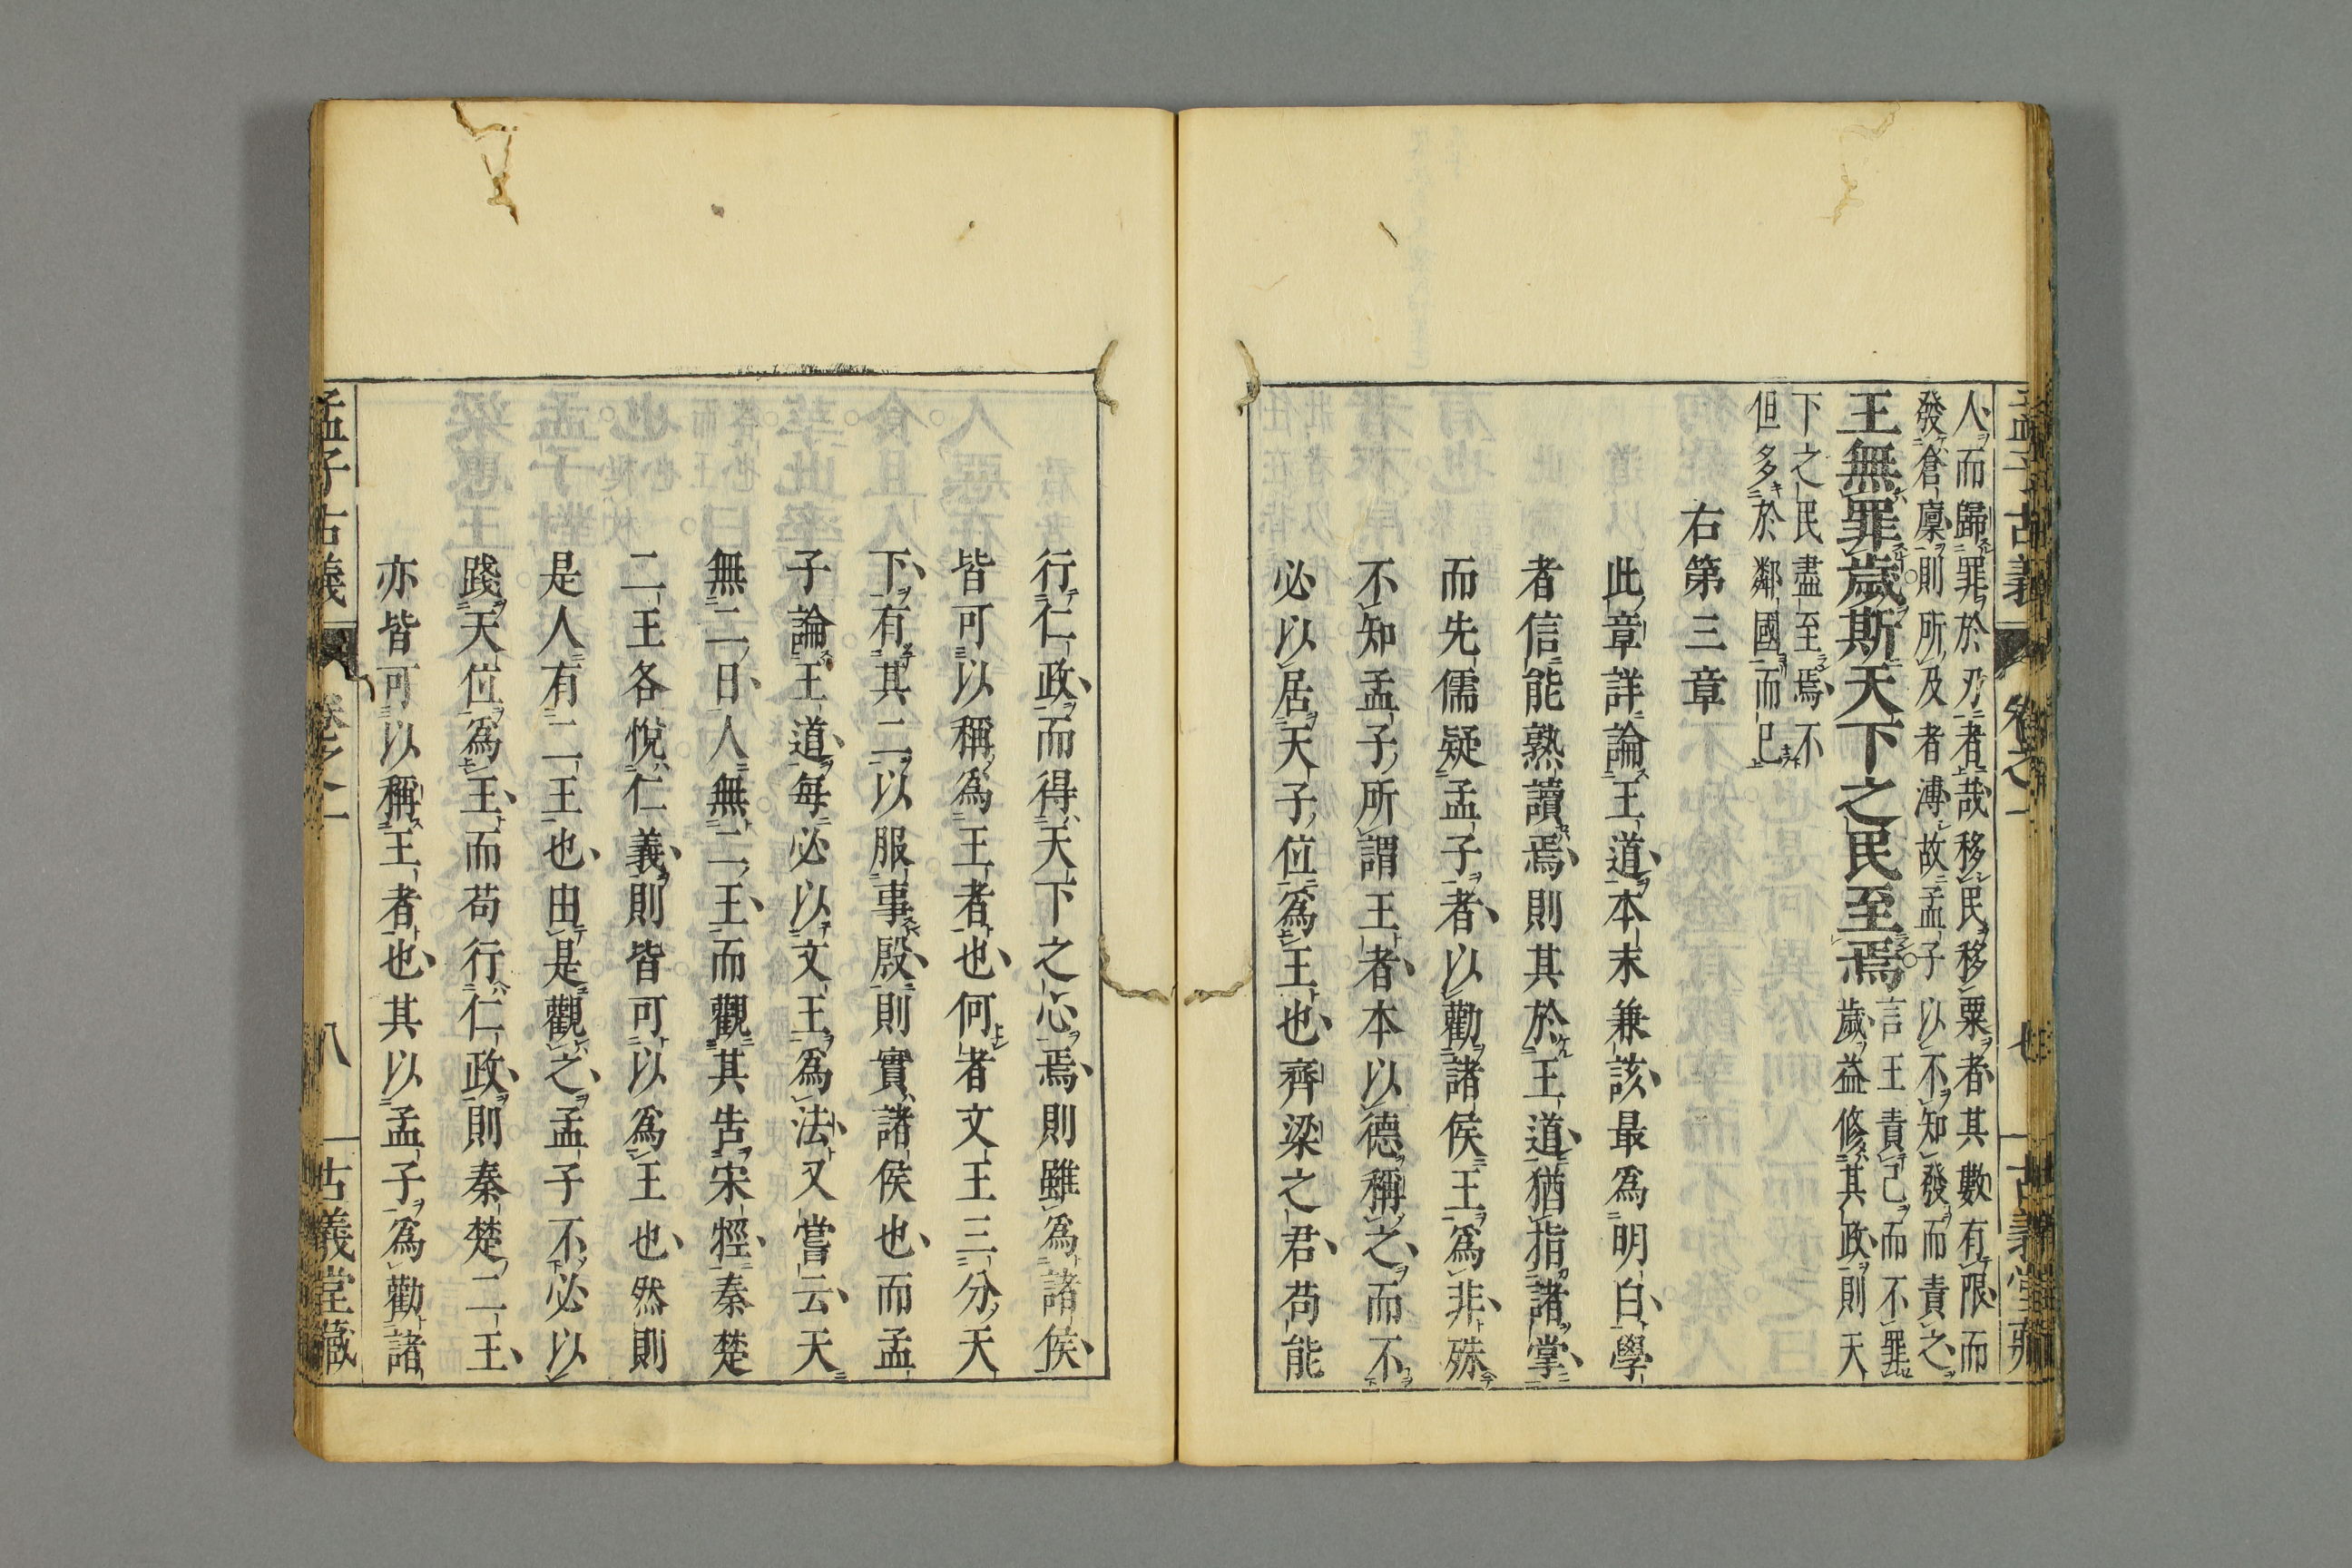 人而歸罪於刃者哉移民移粟者其數有限而
發倉廩則所及者溥故孟子以不知發而責之
王無罪歲斯天下之民至焉
言王責己而不罪
歲益修其政則天
下之民盡至焉不
但多於鄰國而已
右第三章
此章詳論王道本末兼該最爲明白學
者信能熟讀焉則其於王道猶指諸掌
而先儒疑孟子者以勸諸侯王爲非殊
不知孟子所謂王者本以德稱之而不
必以居天子位爲王也齊梁之君苟能
行仁政而得天下之心焉則雖爲諸侯
皆可以稱爲王者也何者文王三分天
下有其二以服事殷則實諸侯也而孟
子論王道每必以文王爲法又嘗云天
無二日人無二王而觀其告宋牼秦楚
二王各悅仁義則皆可以爲王也然則
是人有二王也由是觀之孟子不必以
踐天位爲王而苟行仁政則秦楚二王
亦皆可以稱王者也其以孟子爲勸諸
孟子古義
卷之一
八
古義堂藏